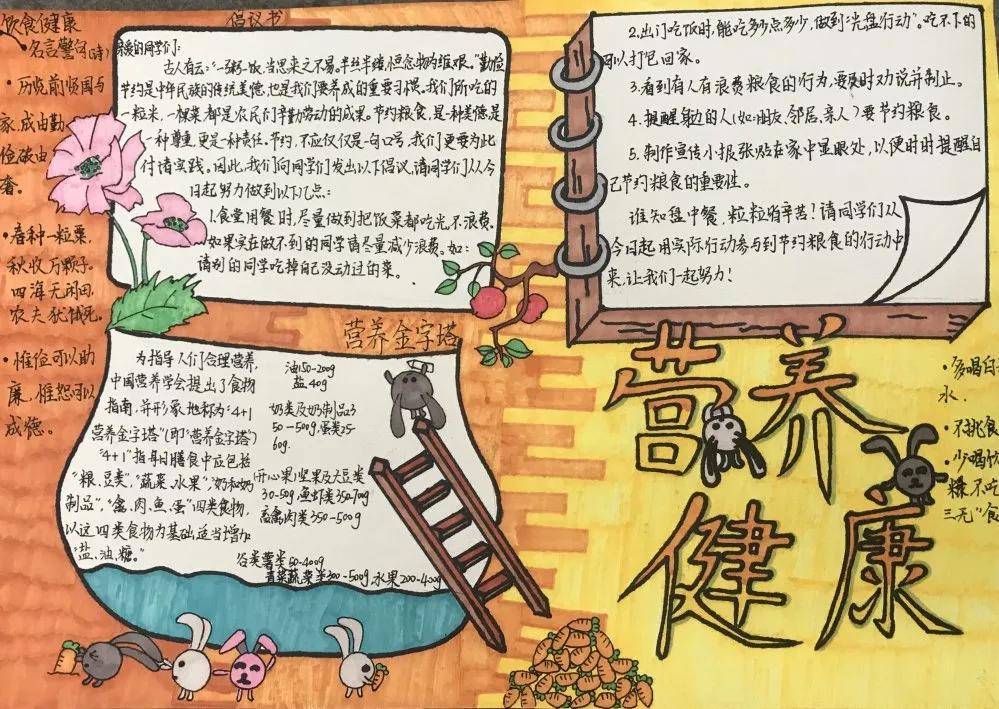 饮食健康
名言警句(诗)
• 历览前贤国与
家,成由勤
俭破由
奢。
• 春种一粒粟,
秋收万颗子。
四海无闲田,
农夫犹饿死。
• 惟俭可以助
廉,惟恕可以
成德。
倡议书
亲爱的同学们:
古人有云:"一粥一饭,当思来之不易。半丝半缕,恒念物力维艰。"勤俭
节约是中华民族的传统美德,也是我们要养成的重要习惯。我们所吃的
一粒米,一棵菜都是农民们辛勤劳动的成果。节约粮食,是一种美德,是
一种尊重,更是一种责任。节约,不应仅仅是一句口号,我们更要为此
付诸实践。因此,我们向同学们发出以下倡议,请同学们从今
日起努力做到以下几点:
1.食堂用餐时,尽量做到把饭菜都吃光,不浪费。
如果实在做不到的同学请尽量减少浪费。如:
请别的同学吃掉自己没动过的菜。
2.出门吃饭时,能吃多少点多少,做到"光盘行动"。吃不下的
可以打包回家。
3.看到有人有浪费粮食的行为,要及时劝说并制止。
4.提醒身边的人(如:朋友、邻居、亲人)要节约粮食。
5.制作宣传小报张贴在家中显眼处,以便时时提醒自
己节约粮食的重要性。
谁知盘中餐,粒粒皆辛苦!请同学们从
今日起用实际行动参与到节约粮食的行动中
来,让我们一起努力!
营养金字塔
为指导人们合理营养,
中国营养学会提出了食物
指南,并形象地称为"4+1
营养金字塔"(即"营养金字塔")
"4+1"指每日膳食中应包括
"粮、豆类","蔬菜、水果","奶和奶
制品","禽、肉、鱼、蛋"四类食物,
以这四类食物为基础,适当增加
"盐、油、糖。"
油150-200g
盐40g
奶类及奶制品
50-500g,蛋类25-
60g.
(开心果)坚果及大豆类
30-50g,鱼虾类350-700g
畜禽肉类350-500g
谷类薯类50-400g
青菜蔬菜类300-500g,水果200-400g
营养
健康
• 多喝白
水.
• 不挑食
• 少喝饮
不吃
三无"食